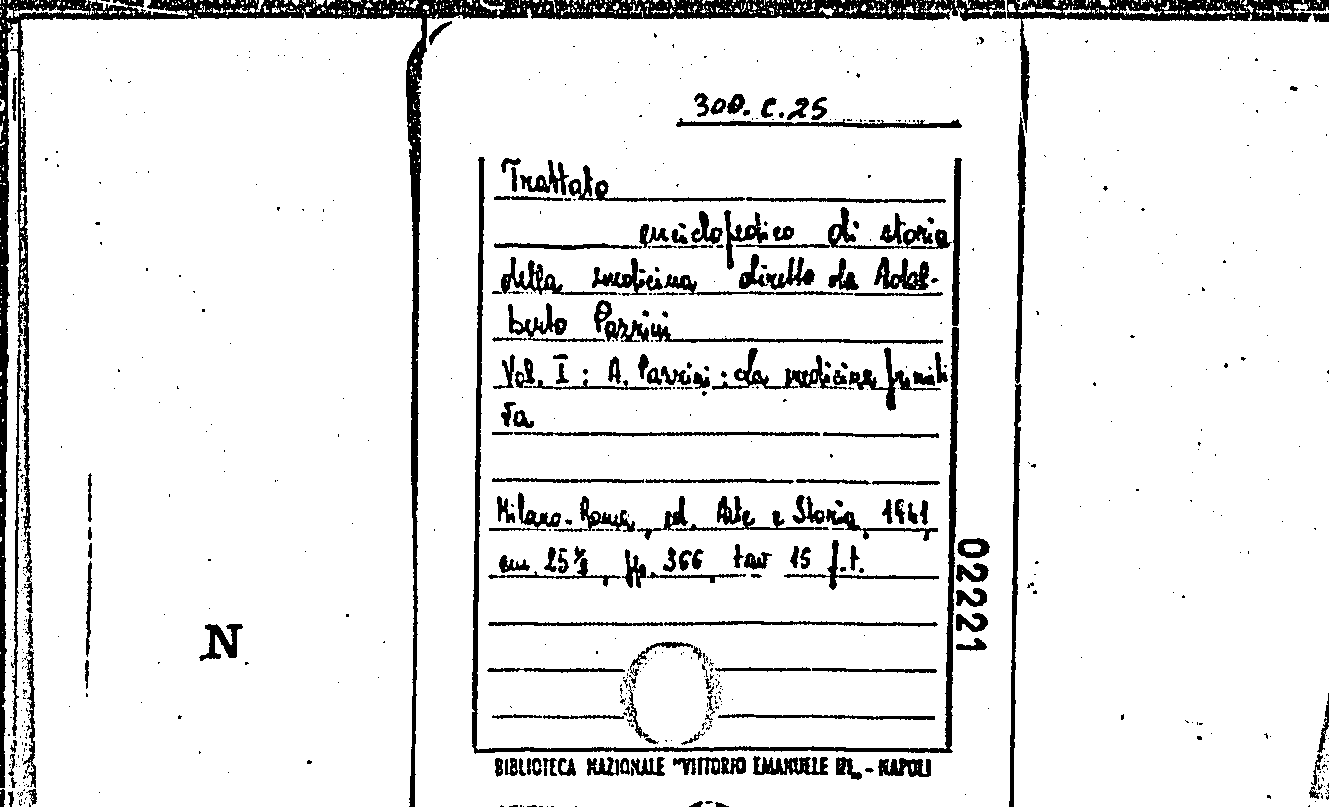 300. C. 25
Trattato
enciclopedico di storia
della medicina diretto da Adal-
berto Pazzini
Vol. I : A. Pazzini : La medicina primiti
va
Milano-Roma, ed. Arte e Storia, 1941,
cm. 25 , pp. 366, tav 15 f.t.
02221
N
BIBLIOTECA NAZIONALE "VITTORIO EMANUELE III„ - NAPOLI